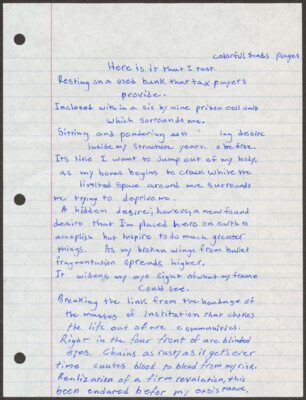 colorfull Seeds Pages
Here is it that I rest.
Resting on a used bunk that tax payers
provide.
Inclosed within a six by nine prison cell unit
which sorrounds me.
Sitting and pondering as
inside my structure yearn. 2 be free.
Its like I want to Jump out of my body,
as my bones begins to crack while the
limited space around me surrounds
me trying to deprive me.
A hidden desire; however a new found
desire that I'm placed here on earth to
accoplish but inspire to do much greater
things. As my broken wings from bullet
fragmentation spreads higher.
It widens my eye sight of what my frame
could see.
Breaking the link from the bondage of
the masses of Institution that chokes
the life out of are communities.
Right in the four front of are blinded
eyes. Chains as rusty as it gets over
time causes blood to bleed from my rise.
Realization of a firm revalation, this
been endured before my existance,